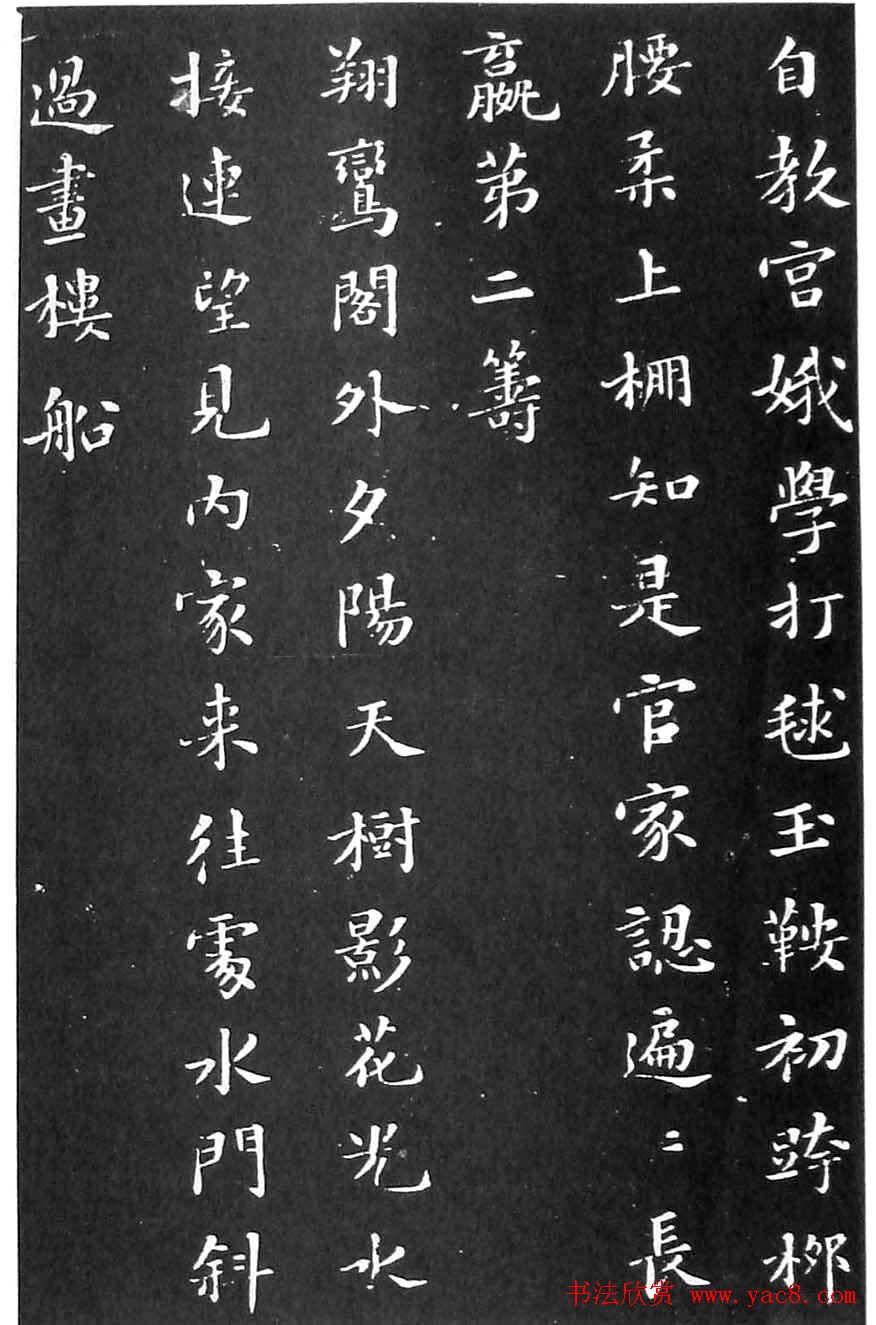 自教宮娥學打毬玉鞍初跨柳
腰柔上棚知是官家認遍〻長
嬴第二籌
翔鸞閣外夕陽天樹影花光水
接連望見內家来往處水門斜
過畫樓船
书法欣赏 www.yac8.com